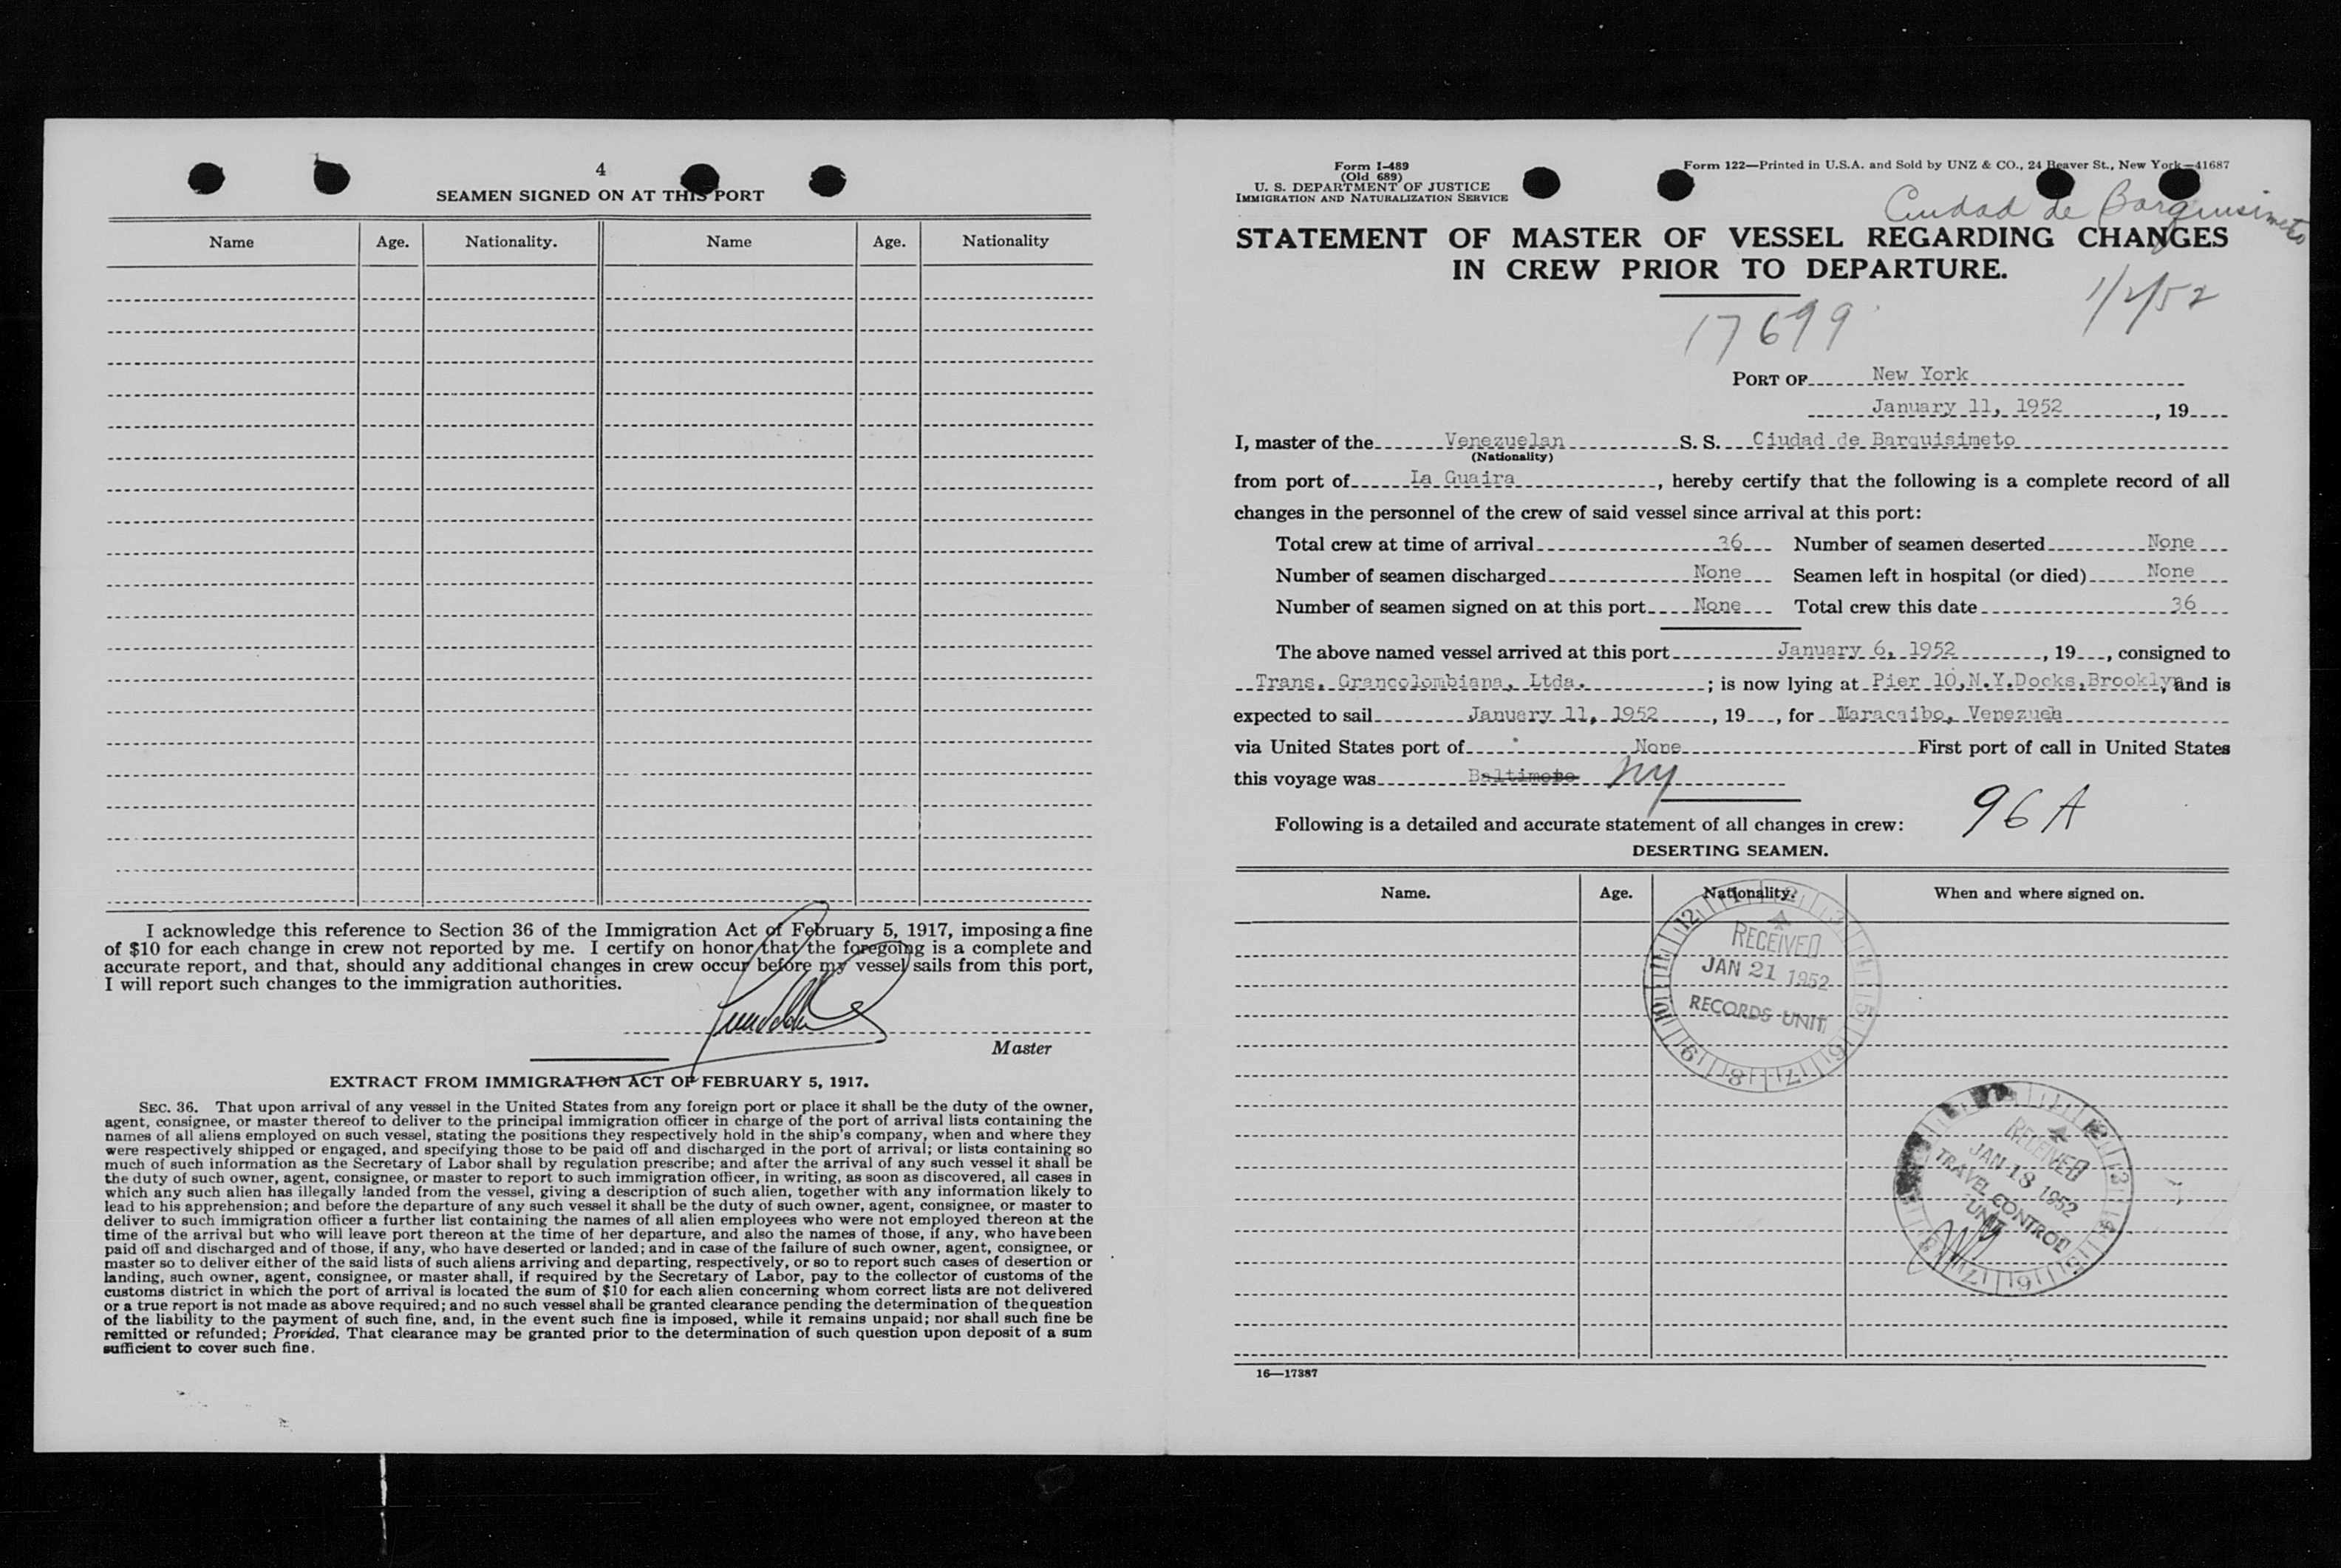 4
SEAMEN SIGNED ON AT THIS PORT
Name Age. Nationality. Name Age. Nationality
I acknowledge this reference to Section 36 of the Immigration Act of February 5, 1917, imposing a fine
of $10 for each change in crew not reported by me. I certify on honor that the foregoing is a complete and
accurate report, and that, should any additional changes in crew occur before my vessel sails from this port,
I will report such changes to the immigration authorities.
Master
EXTRACT FROM IMMIGRATION ACT OF FEBRUARY 5, 1917.
SEC. 36. That upon arrival of any vessel in the United States from any foreign port or place it shall be the duty of the owner,
agent, consignee, or master thereof to deliver to the principal immigration officer in charge of the port of arrival lists containing the
names of all aliens employed on such vessel, stating the positions they respectively hold in the ship's company, when and where they
were respectively shipped or engaged, and specifying those to be paid off and discharged in the port of arrival; or lists containing so
much of such information as the Secretary of Labor shall by regulation prescribe; and after the arrival of any such vessel it shall be
the duty of such owner, agent, consignee, or master to report to such immigration officer, in writing, as soon as discovered, all cases in
which any such alien has illegally landed from the vessel, giving a description of such alien, together with any information likely to
lead to his apprehension; and before the departure of any such vessel it shall be the duty of such owner, agent, consignee, or master to
deliver to such immigration officer a further list containing the names of all alien employees who were not employed thereon at the
time of the arrival but who will leave port thereon at the time of her departure, and also the names of those, if any, who have been
paid off and discharged and of those, if any, who have deserted or landed; and in case of the failure of such owner, agent, consignee, or
master so to deliver either of the said lists of such aliens arriving and departing, respectively, or so to report such cases of desertion or
landing, such owner, agent, consignee, or master shall, if required by the Secretary of Labor, pay to the collector of customs of the
customs district in which the port of arrival is located the sum of $10 for each alien concerning whom correct lists are not delivered
or a true report is not made as above required; and no such vessel shall be granted clearance pending the determination of the question
of the liability to the payment of such fine, and, in the event such fine is imposed, while it remains unpaid; nor shall such fine be
remitted or refunded; Provided, That clearance may be granted prior to the determination of such question upon deposit of a sum
sufficient to cover such fine.
Form I-489
(Old 689)
U. S. DEPARTMENT OF JUSTICE
IMMIGRATION AND NATURALIZATION SERVICE
Form 122—Printed in U.S.A. and Sold by UNZ & CO., 24 Beaver St., New York—41687
Ciudad de Barquisimeto
STATEMENT OF MASTER OF VESSEL REGARDING CHANGES
IN CREW PRIOR TO DEPARTURE.
1/2/52
17699
PORT OF New York
January 11, 1952, 19
I, master of the Venezuelan S. S. Ciudad de Barquisimeto
(Nationality)
from port of La Guaira, hereby certify that the following is a complete record of all
changes in the personnel of the crew of said vessel since arrival at this port:
Total crew at time of arrival 36 Number of seamen deserted None
Number of seamen discharged None Seamen left in hospital (or died) None
Number of seamen signed on at this port None Total crew this date 36
The above named vessel arrived at this port January 6, 1952, 19, consigned to
Trans. Grancolombiana, Ltda.; is now lying at Pier 10,N.Y.Docks,Brooklyn, and is
expected to sail January 11, 1952, 19, for Maracaibo, Venezuela
via United States port of None First port of call in United States
this voyage was Baltimore NY
Following is a detailed and accurate statement of all changes in crew:
96A
DESERTING SEAMEN.
Name. Age. Nationality. When and where signed on.
RECEIVED
JAN 21 1952
RECORDS UNIT
RECEIVED
JAN 18 1952
TRAVEL CONTROL
UNIT
16—17387